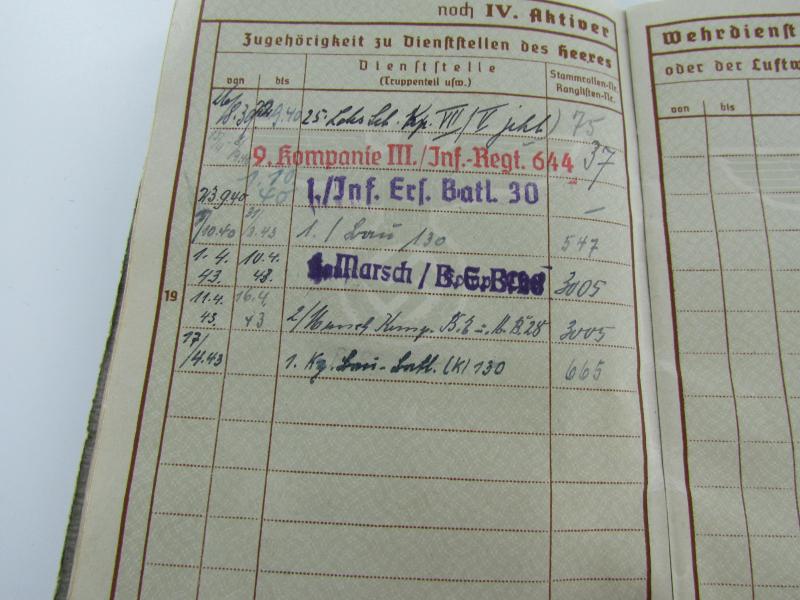 noch IV. Aktiver
Zugehörigkeit zu Dienststellen des Heeres
von bis
Dienststelle
(Truppenteil usw.)
Stammrollen-Nr.
Ranglisten-Nr.
9.40 25. Kp. VII/V 75
9. Kompanie III./Inf.-Regt. 644 37
1.10 40
23.9.40 1./Inf. Ers. Batl. 30 –
10.40 31/3.43 1./Bau 130 547
1.4. 43. 10.4. 43. Marsch / 3005
19
11.4. 43. 16.4. 43 2/Marsch Komp. B.E.u.A.B.28 3005
17/4.43 1. Kp. Bau-Batl. (K) 130 665
Wehrdienst
oder der Luftw
von bis